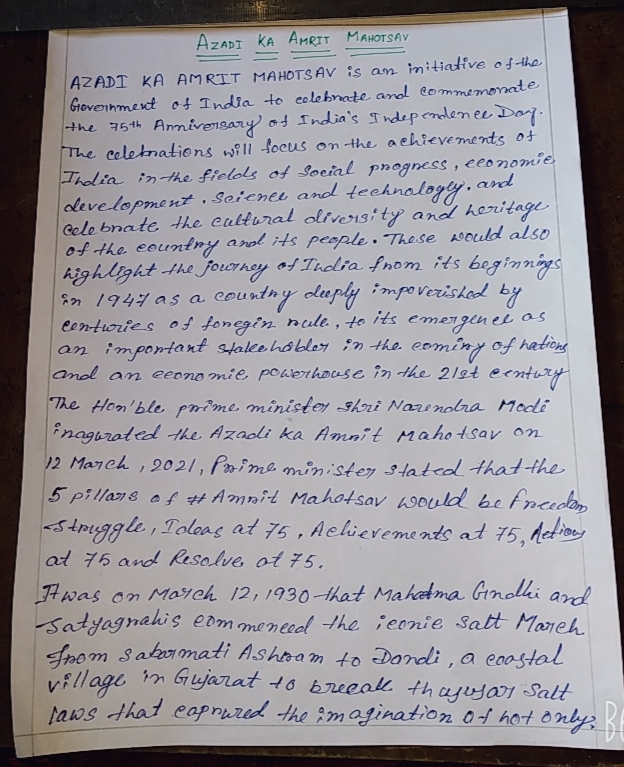 AZADI KA AMRIT MAHOTSAV
AZADI KA AMRIT MAHOTSAV is an initiative of the
Government of India to celebrate and commemorate
the 75th Anniversary of India's Independence Day.
The celebrations will focus on the achievements of
India in the fields of social progress, economic
development. science and technology. and
celebrate the cultural diversity and heritage
of the country and its people. These would also
highlight the journey of India from its beginnings
in 1947 as a country deeply impoverished by
centuries of foregin rule, to its emergence as
an important stakeholder in the cominy of nations
and an economic powerhouse in the 21st century
The Hon'ble prime minister Shri Narendra Modi
inagurated the Azadi Ka Amrit Mahotsav on
12 March, 2021, Prime minister stated that the
5 pillars of # Amrit Mahotsav would be Freedom
Struggle, Ideas at 75, Achievements at 75, Actions
at 75 and Resolve at 75.
It was on March 12, 1930 that Mahatma Gndhi and
Satyagrahis commenced the iconic Salt March
from Sabarmati Ashram to Dandi, a coastal
village in Gujarat to breeak Salt
laws that caprured the imagination of not only